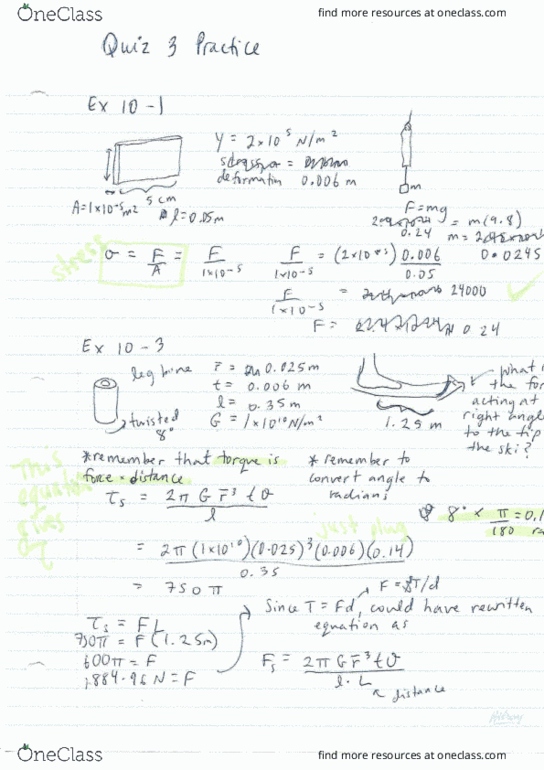 OneClass find more resources at oneclass.com
Quiz 3 Practice
Ex 10-1
Y = 2×10⁵ N/m²
deformation 0.006 m
5 cm
A=1×10⁻⁵m² l=0.05m
m
F=mg
0.24 = m(9.8)
m=
0.0245
stress
σ = F/A = F/1×10⁻⁵
F/1×10⁻⁵ = (2×10⁵) 0.006/0.05
F/1×10⁻⁵ = 24000
F = 0.24
Ex 10-3
leg bone
twisted 8°
r̄ = 0.025m
t = 0.006 m
l = 0.35 m
G = 1×10¹⁰N/m²
1.25 m
What i
the for
acting at
right angle
to the tip
the ski?
*remember that torque is
force × distance
* remember to
convert angle to
radians
This
equation
gives
τs = 2π G r̄³ t θ / l
8° × π/180 = 0.1
ra
just plug
= 2π (1×10¹⁰)(0.025)³(0.006)(0.14) / 0.35
= 750 π
F = T/d
Since T=Fd, could have rewritten
equation as
τs = FL
750π = F(1.25m)
600π = F
1884.96 N = F
Fs = 2π G r̄³ t θ / l·L
distance
OneClass find more resources at oneclass.com